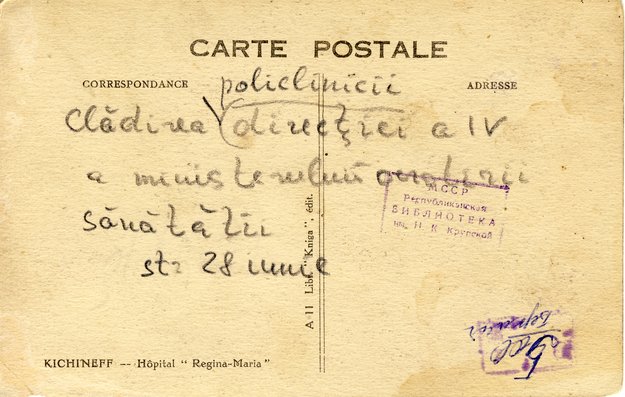 CARTE POSTALE
CORRESPONDANCE
ADRESSE
policlinicii
Clădirea direcţiei a IV
a ministerului ocrotirii
sănătăţii
str 28 iunie
МССР
Республиканская
БИБЛИОТЕКА
им. Н. К. Крупской
A 11 Libr. "Kniga", edit.
KICHINEFF -- Hôpital " Regina-Maria "